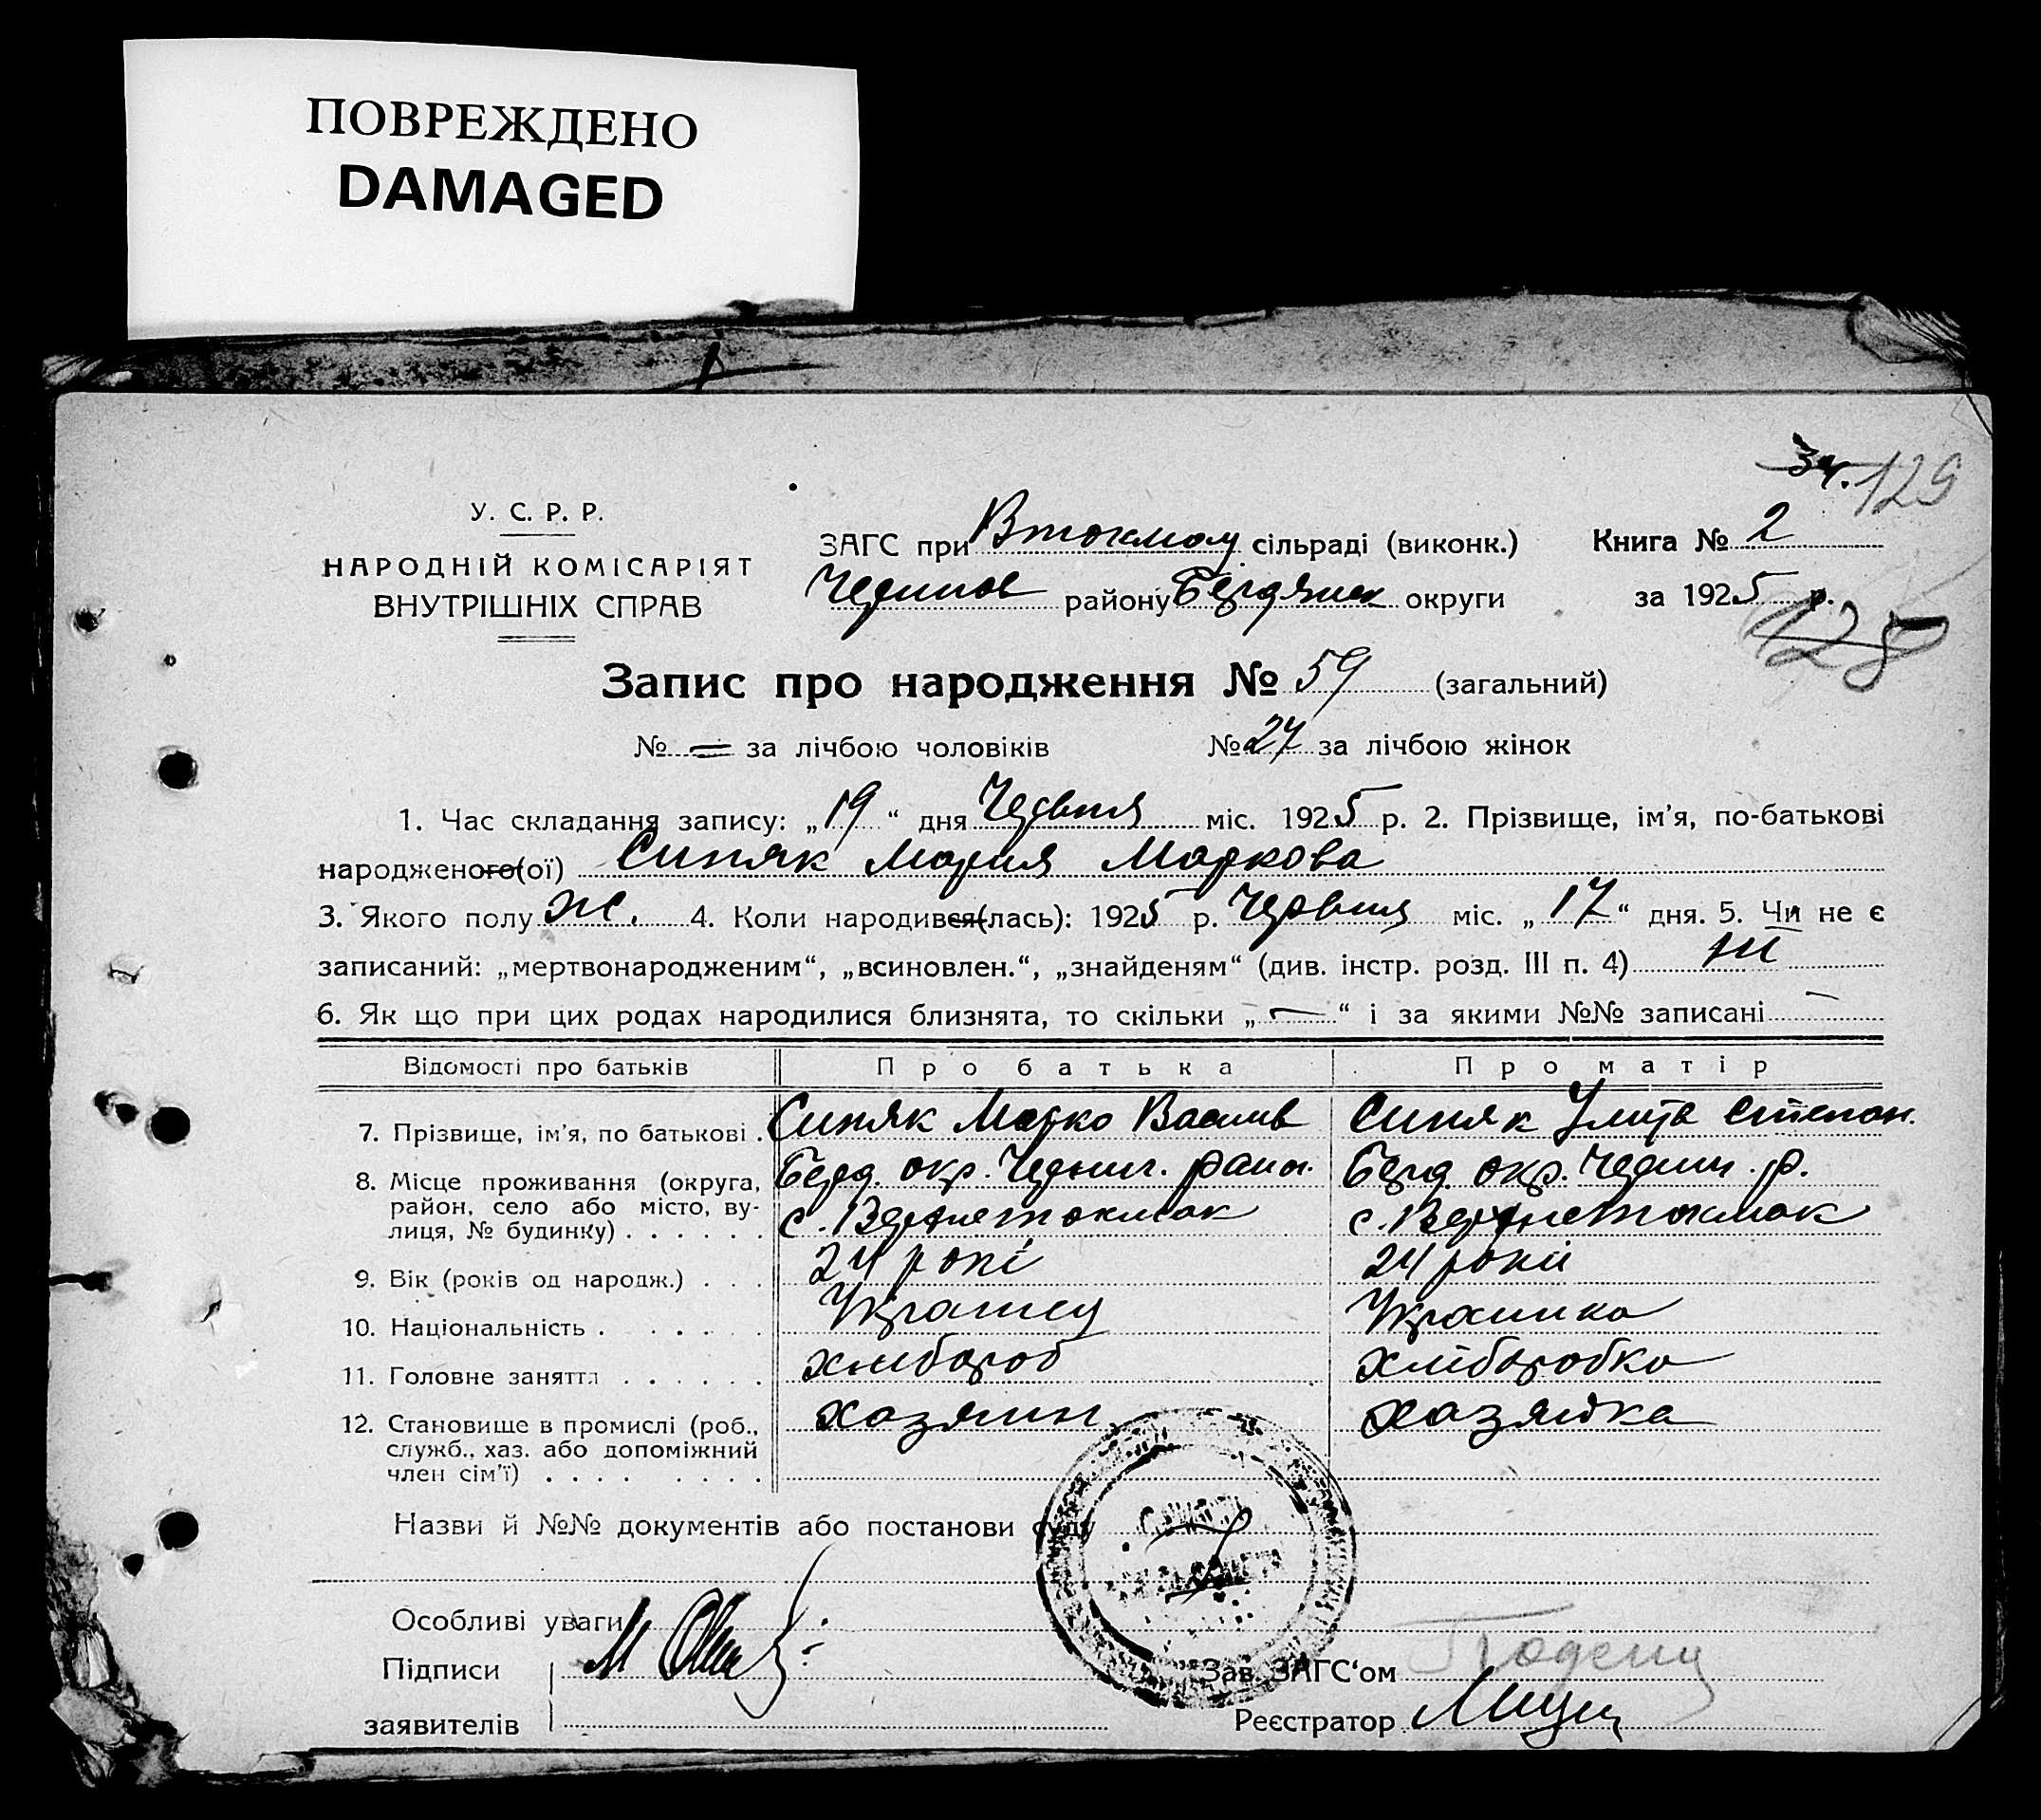 ПОВРЕЖДЕНО
DAMAGED
Зч. 129
У. С. Р. Р.
НАРОДНІЙ КОМІСАРІЯТ
ВНУТРІШНІХ СПРАВ
ЗАГС при Втокмоц сільраді (виконк.)
Книга № 2
Чернигов району Бердянск округи
за 1925 р.
128
Запис про народження № 59 (загальний)
№ = за лічбою чоловіків № 27 за лічбою жінок
1. Час складання запису: „19“ дня Червня міс. 1925 р. 2. Прізвище, ім'я, по-батькові
народженого(ої) Синяк Мария Маркова
3. Якого полу Ж. 4. Коли народився(лась): 1925 р. Червня міс. „17“ дня. 5. Чи не є
записаний: „мертвонародженим“, „всиновлен.“, „знайденям“ (див. інстр. розд. III п. 4) ні
6. Як що при цих родах народилися близнята, то скільки „—“ і за якими №№ записані —
Відомості про батьків Про батька Про матір
7. Прізвище, ім'я, по батькові . Синяк Марко Васлив Синяк Улита Степан.
8. Місце проживання (округа, Берд. окр. Черниг. раин. Берд. окр. Черниг. р.
район, село або місто, ву-
лиця, № будинку) . . . . . . с. Верхнетокмак с. Верхнетокмак
9. Вік (років од народж.) . . . 24 рокі 24 роки
10. Національність . . . . . Украинец Украинка
11. Головне заняття . . . . . . хлибороб хліборобка
12. Становище в промислі (роб., хозяин хозяйка
служб., хаз. або допоміжний
член сім'ї) . . . . . . . .
Назви й №№ документів або постанови суду
Особливі уваги
Підписи
Зав. ЗАГС'ом
заявителів
Реєстратор